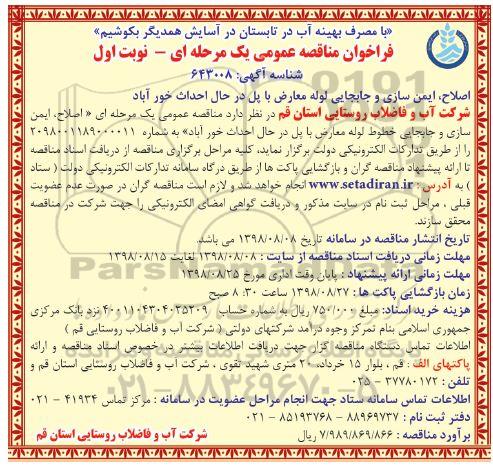 «با مصرف بهینه آب در تابستان در آسایش همدیگر بکوشیم»
فراخوان مناقصه عمومی یک مرحله ای – نوبت اول
شناسه آگهی: ۶۴۳۰۰۸
اصلاح، ایمن سازی و جابجایی لوله معارض با پل در حال احداث خور آباد
شرکت آب و فاضلاب روستایی استان قم در نظر دارد مناقصه عمومی یک مرحله ای « اصلاح، ایمن
سازی و جابجایی خطوط لوله معارض با پل در حال احداث خور آباد» به شماره ۲۰۹۸۰۰۱۱۸۹۰۰۰۰۱۱
را از طریق تدارکات الکترونیکی دولت برگزار نماید، کلیه مراحل برگزاری مناقصه از دریافت اسناد مناقصه
تا ارائه پیشنهاد مناقصه گران و بازگشایی پاکت ها از طریق درگاه سامانه تدارکات الکترونیکی دولت ( ستاد
) به آدرس : www.setadiran.ir انجام خواهد شد و لازم است مناقصه گران در صورت عدم عضویت
قبلی ، مراحل ثبت نام در سایت مذکور و دریافت گواهی امضای الکترونیکی را جهت شرکت در مناقصه
محقق سازند.
تاریخ انتشار مناقصه در سامانه تاریخ ۱۳۹۸/۰۸/۰۸ می باشد.
مهلت زمانی دریافت اسناد مناقصه از سایت : ۱۳۹۸/۰۸/۰۸ لغایت ۱۳۹۸/۰۸/۱۵
مهلت زمانی ارائه پیشنهاد : پایان وقت اداری مورخ ۱۳۹۸/۰۸/۲۵
زمان بازگشایی پاکت ها : ۱۳۹۸/۰۸/۲۷ ساعت ۸:۳۰ صبح
هزینه خرید اسناد: مبلغ ۷۵۰/۰۰۰ ریال به شماره حساب ۴۰۰۱۱۰۴۳۰۴۰۲۵۲۰۹ نزد بانک مرکزی
جمهوری اسلامی بنام تمرکز وجوه درآمد شرکتهای دولتی ( شرکت آب و فاضلاب روستایی قم )
اطلاعات تماس دستگاه مناقصه گزار جهت دریافت اطلاعات بیشتر در خصوص اسناد مناقصه و ارائه
پاکتهای الف : قم ، بلوار ۱۵ خرداد، ۲۰ متری شهید تقوی ، شرکت آب و فاضلاب روستایی استان قم و
تلفن : ۳۷۷۸۰۱۷۲ – ۰۲۵
اطلاعات تماس سامانه ستاد جهت انجام مراحل عضویت در سامانه : مرکز تماس ۴۱۹۳۴ – ۰۲۱
دفتر ثبت نام : ۸۸۹۶۹۷۳۷ – ۸۵۱۹۳۷۶۸ – ۰۲۱
برآورد مناقصه : ۷/۹۸۹/۸۶۹/۸۶۶ ریال
شرکت آب و فاضلاب روستایی استان قم